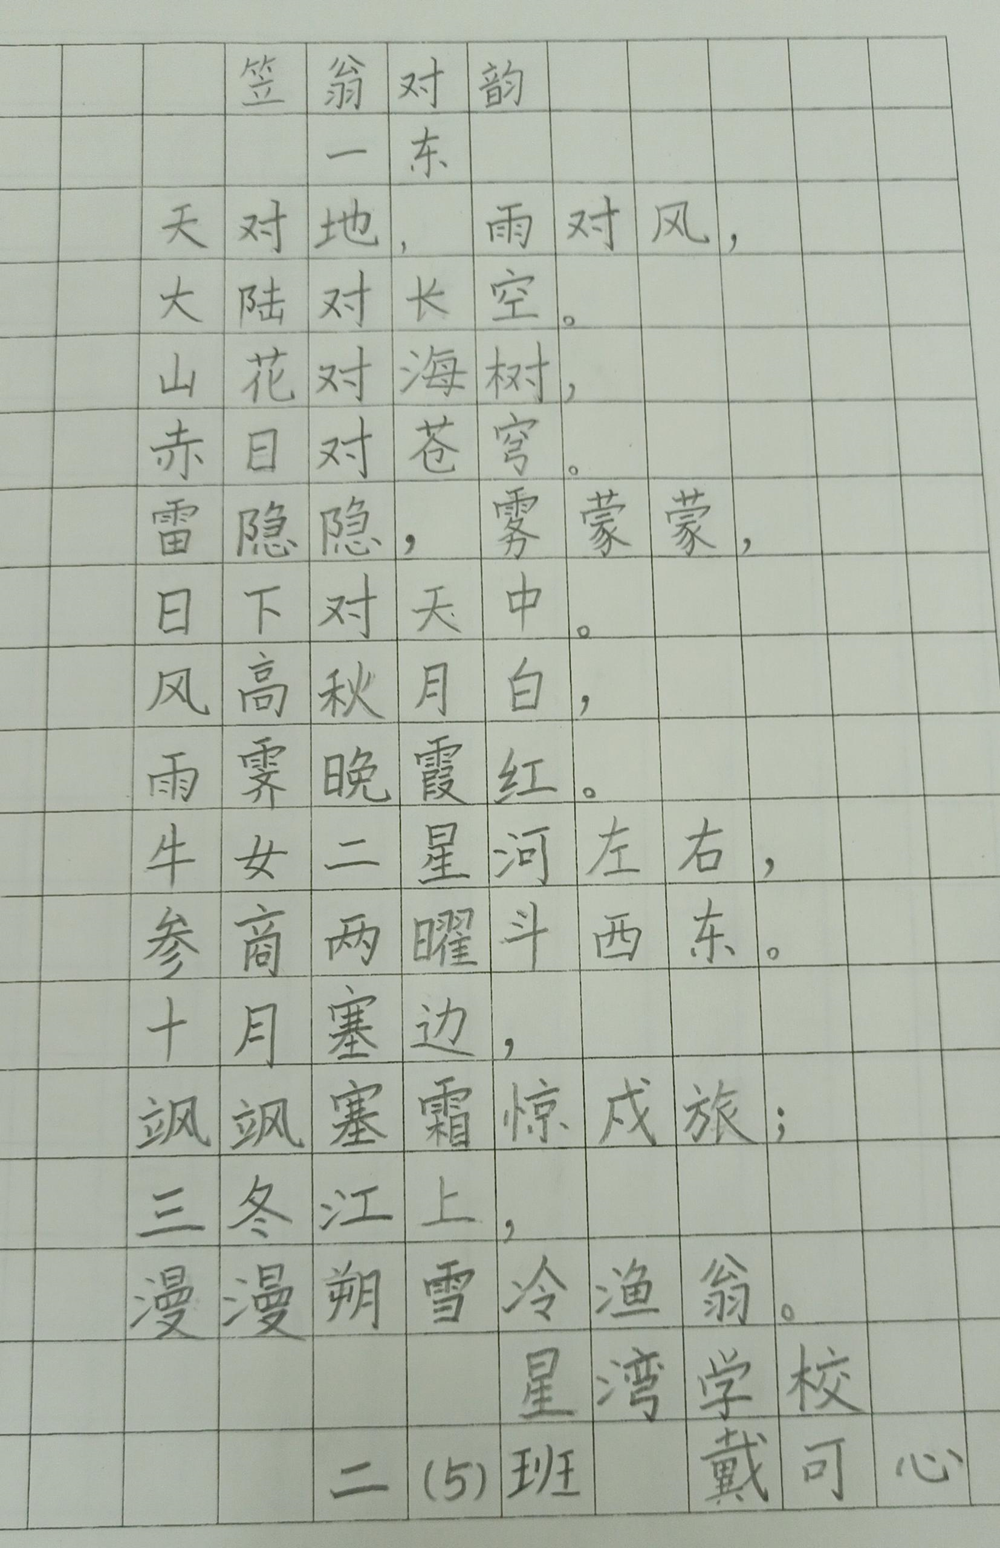 笠翁对韵
一东
天对地，雨对风，
大陆对长空。
山花对海树，
赤日对苍穹。
雷隐隐，雾蒙蒙，
日下对天中。
风高秋月白，
雨霁晚霞红。
牛女二星河左右，
参商两曜斗西东。
十月塞边，
飒飒塞霜惊戍旅；
三冬江上，
漫漫朔雪冷渔翁。
星湾学校
二(5)班 戴可心